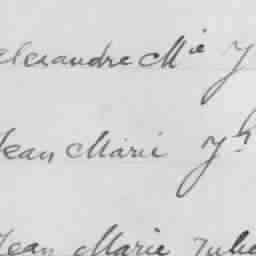 alexandre Mie y
Jean Marie yh
Jean Marie Julie